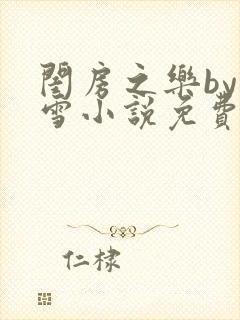 閨房之樂by
雪小說免費
仁棣